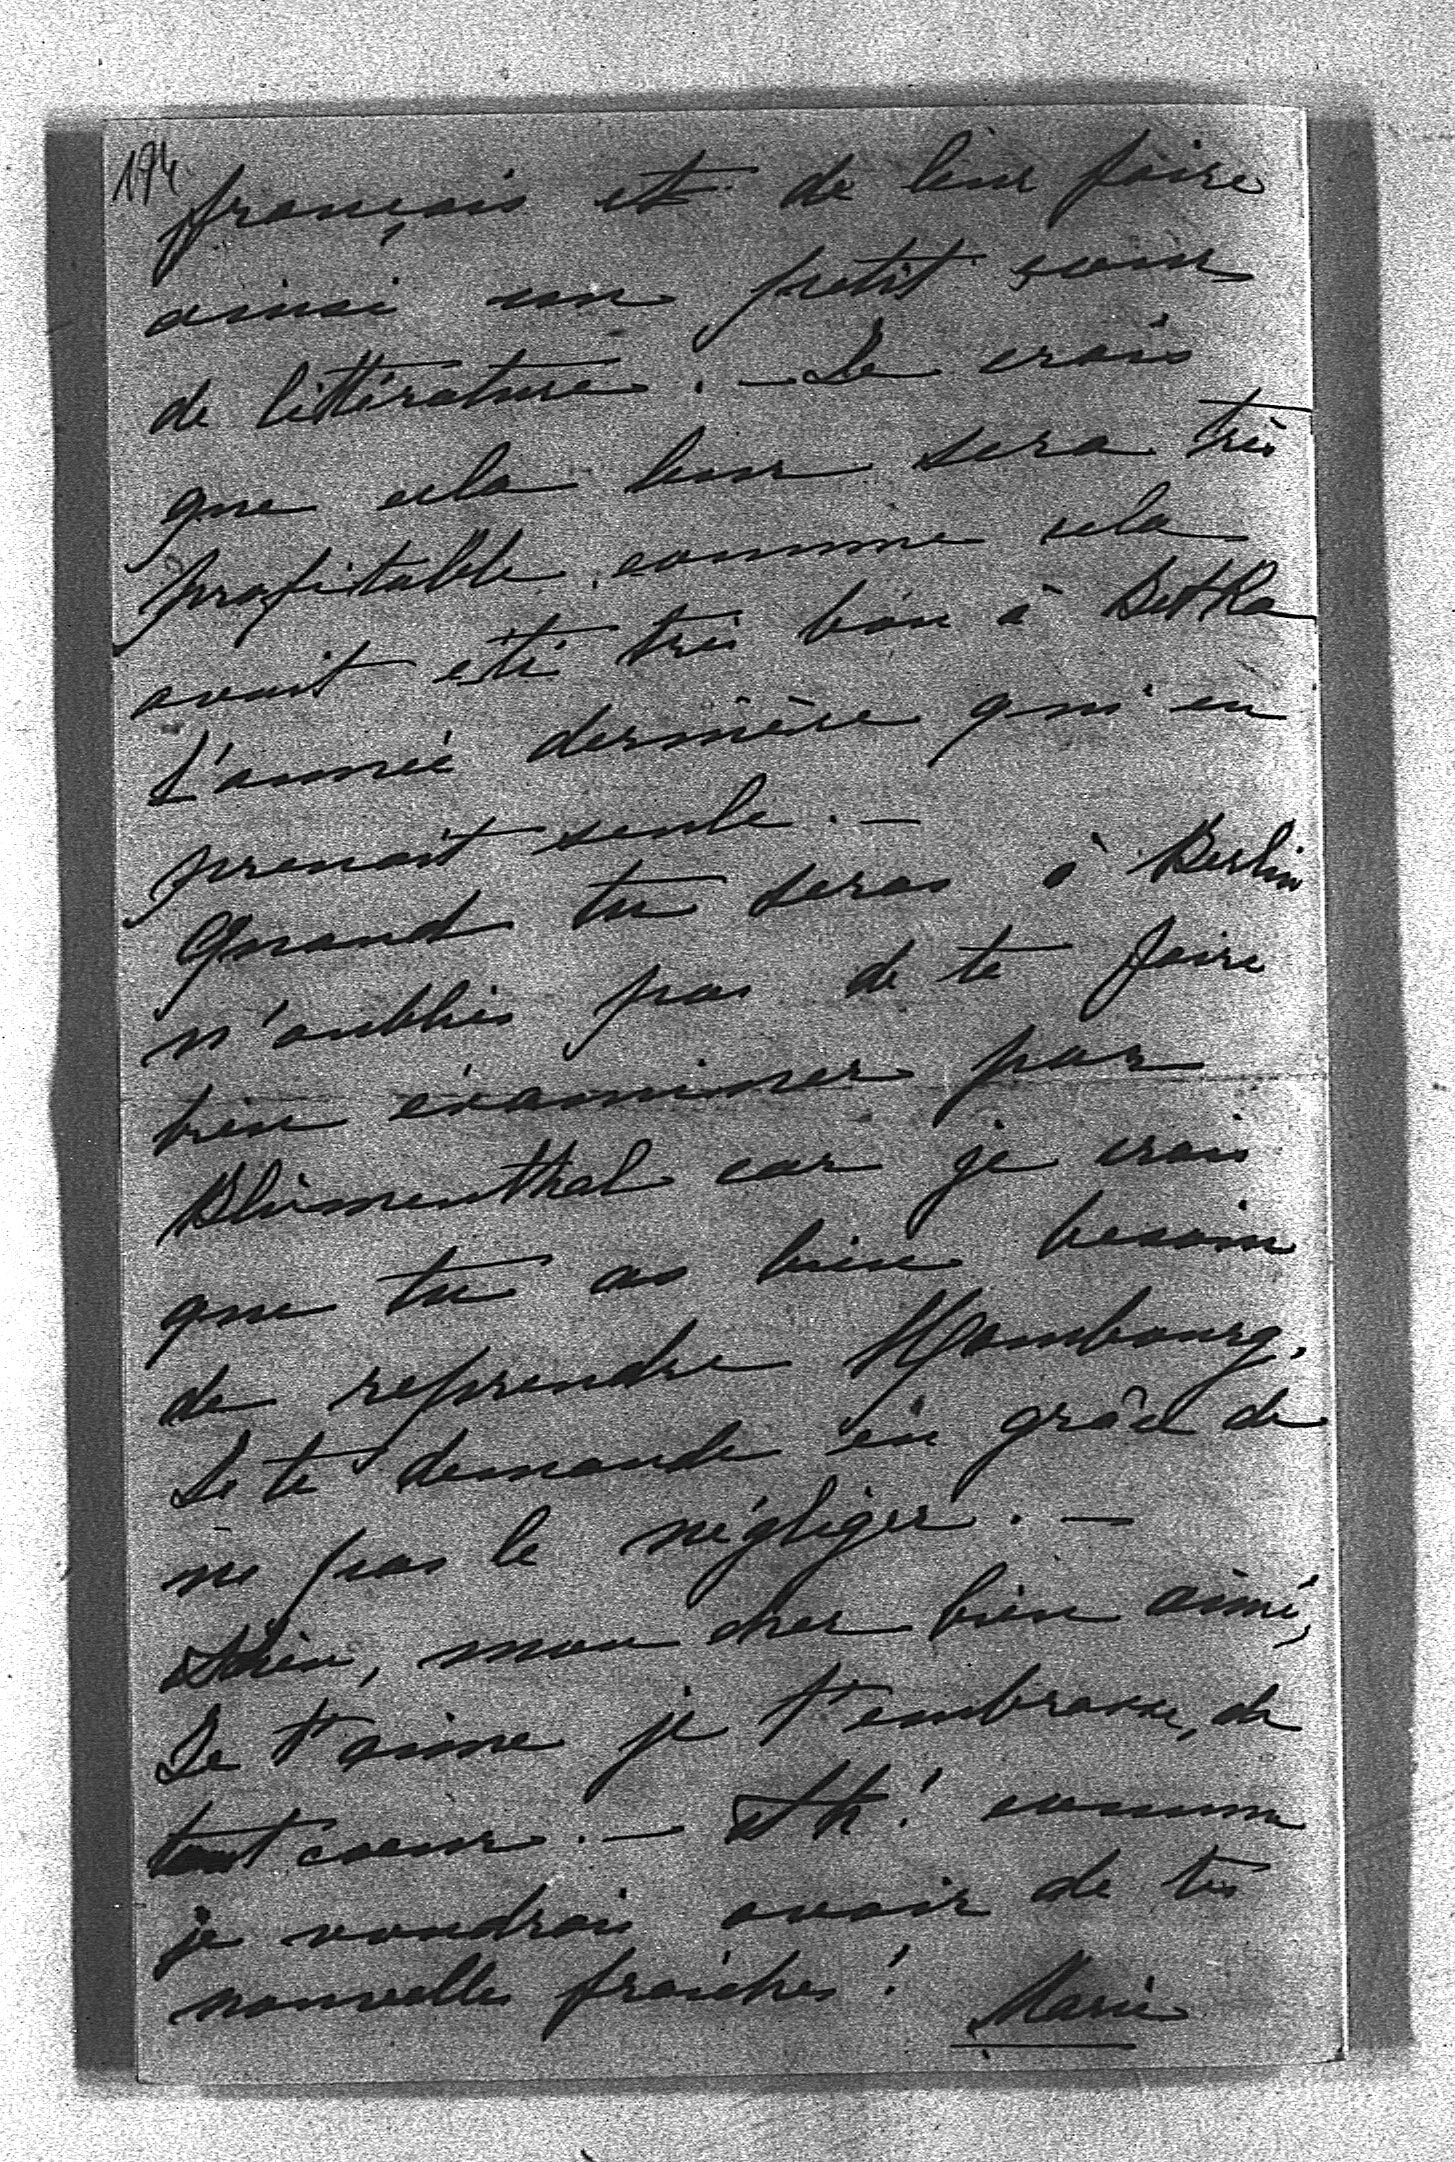 174.
français et de leur faire
ainsi un petit cours
de littérature. – Je crois
que cela leur sera très
profitable, comme cela
avait été très bon à Betka
l'année dernière qui en
prenait seule. –
Quand tu seras à Berlin
n'oublies pas de te faire
bien examiner par
Blumenthal car je crois
que tu as bien besoin
de reprendre Hombourg.
Je te demande en grâce de
ne pas le négliger. –
Adieu, mon cher bien aimé,
Je t'aime je t'embrasse, de
tout coeur. – Ah! comme
je voudrais avoir de tes
nouvelles fraîches!
Marie